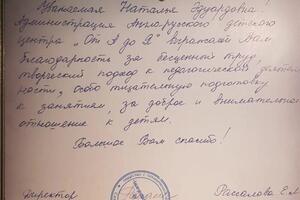 Уважаемая Наталья Эдуардовна!
Администрация Англорусского детского
центра „От А до Я" выражает Вам
благодарность за бесценный труд,
творческий подход к педагогической деятель
ности, особо тщательную подготовку
к занятиям, за доброе и внимательное
отношение к детям.
Большое Вам спасибо!
Директор